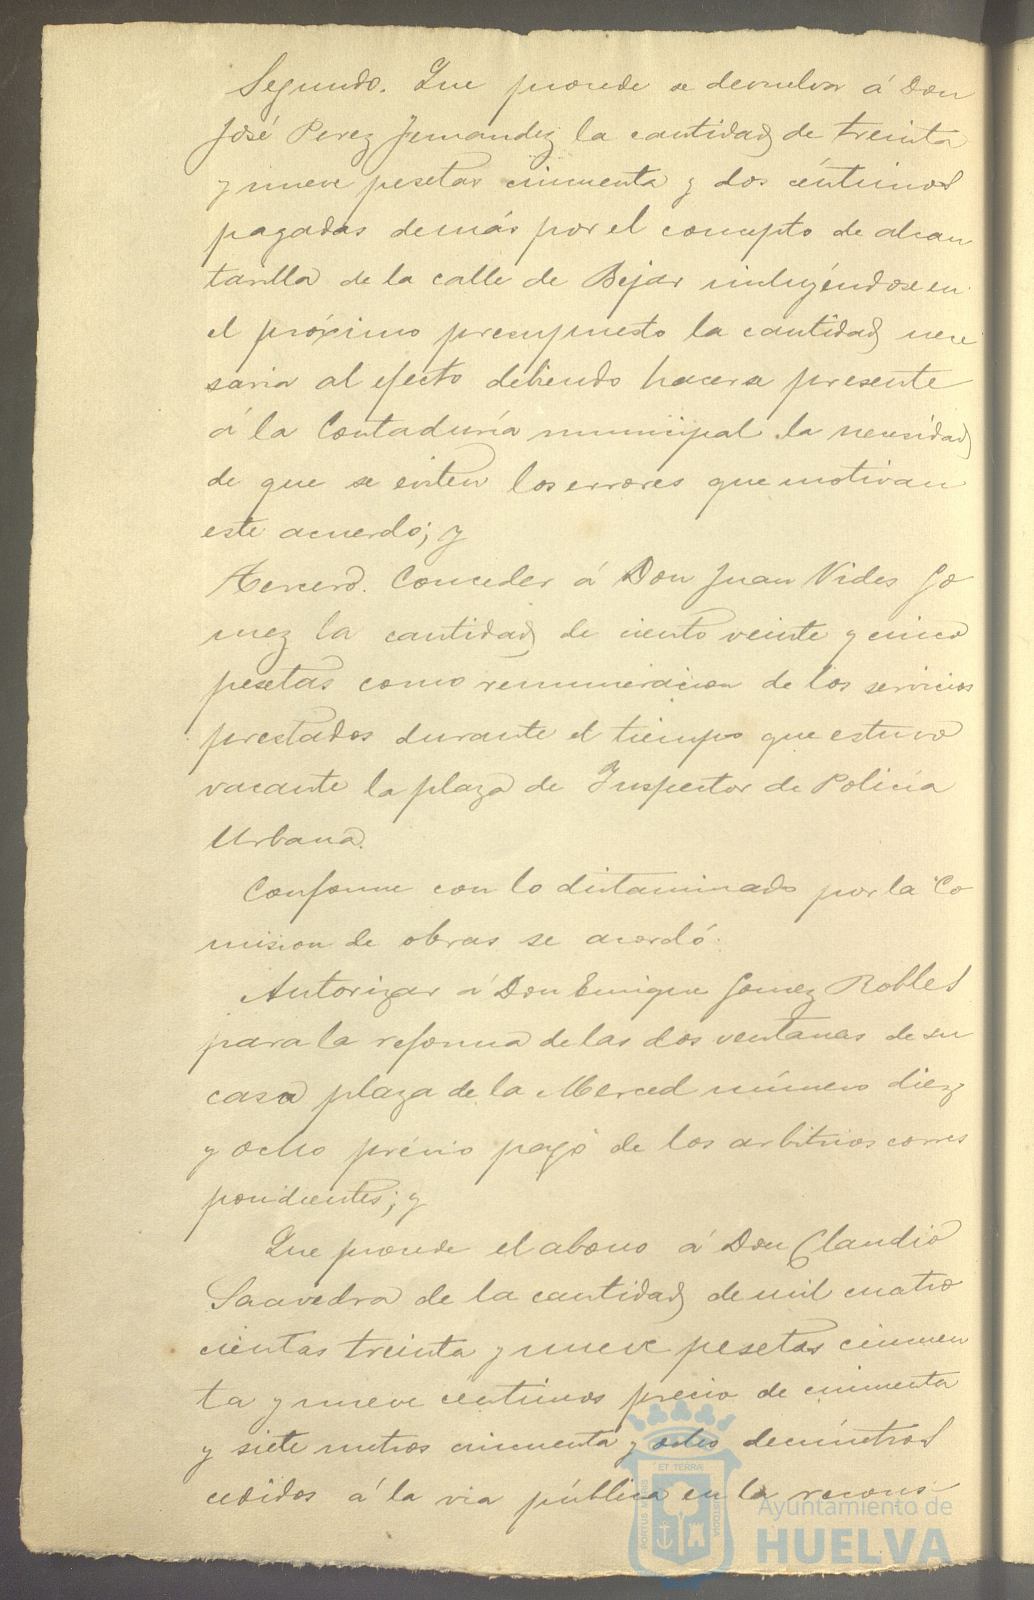 Segundo. Que procede se devuelva á Don
José Perez Fernandez la cantidad de treinta
y nueve pesetas cincuenta y dos céntimos
pagadas demás por el concepto de alcan
tarilla de la calle de Bejar incluyéndose en
el próximo presupuesto la cantidad nece
saria al efecto debiendo hacerse presente
á la Contaduría municipal la necesidad
de que se eviten los errores que motivan
este acuerdo; y
Tercero. Conceder á Don Juan Vides Go
mez la cantidad de ciento veinte y cinco
pesetas como remuneracion de los servicios
prestados durante el tiempo que estuvo
vacante la plaza de Inspector de Policía
Urbana.
Conforme con lo dictaminado por la Co
mision de obras se acordó:
Autorizar á Don Enrique Gomez Robles
para la reforma de las dos ventanas de su
casa plaza de la Merced número diez
y ocho prévio pago de los arbitrios corres
pondientes; y
Que procede el abono á Don Claudio
Saavedra de la cantidad de mil cuatro
cientas treinta y nueve pesetas cincuen
ta y nueve centimos precio de cincuenta
y siete metros cincuenta y ocho decímetros
cedidos á la via pública en la recons
ET TERRAE
PORTUS MARIS
CUSTODIA
Ayuntamiento de
HUELVA